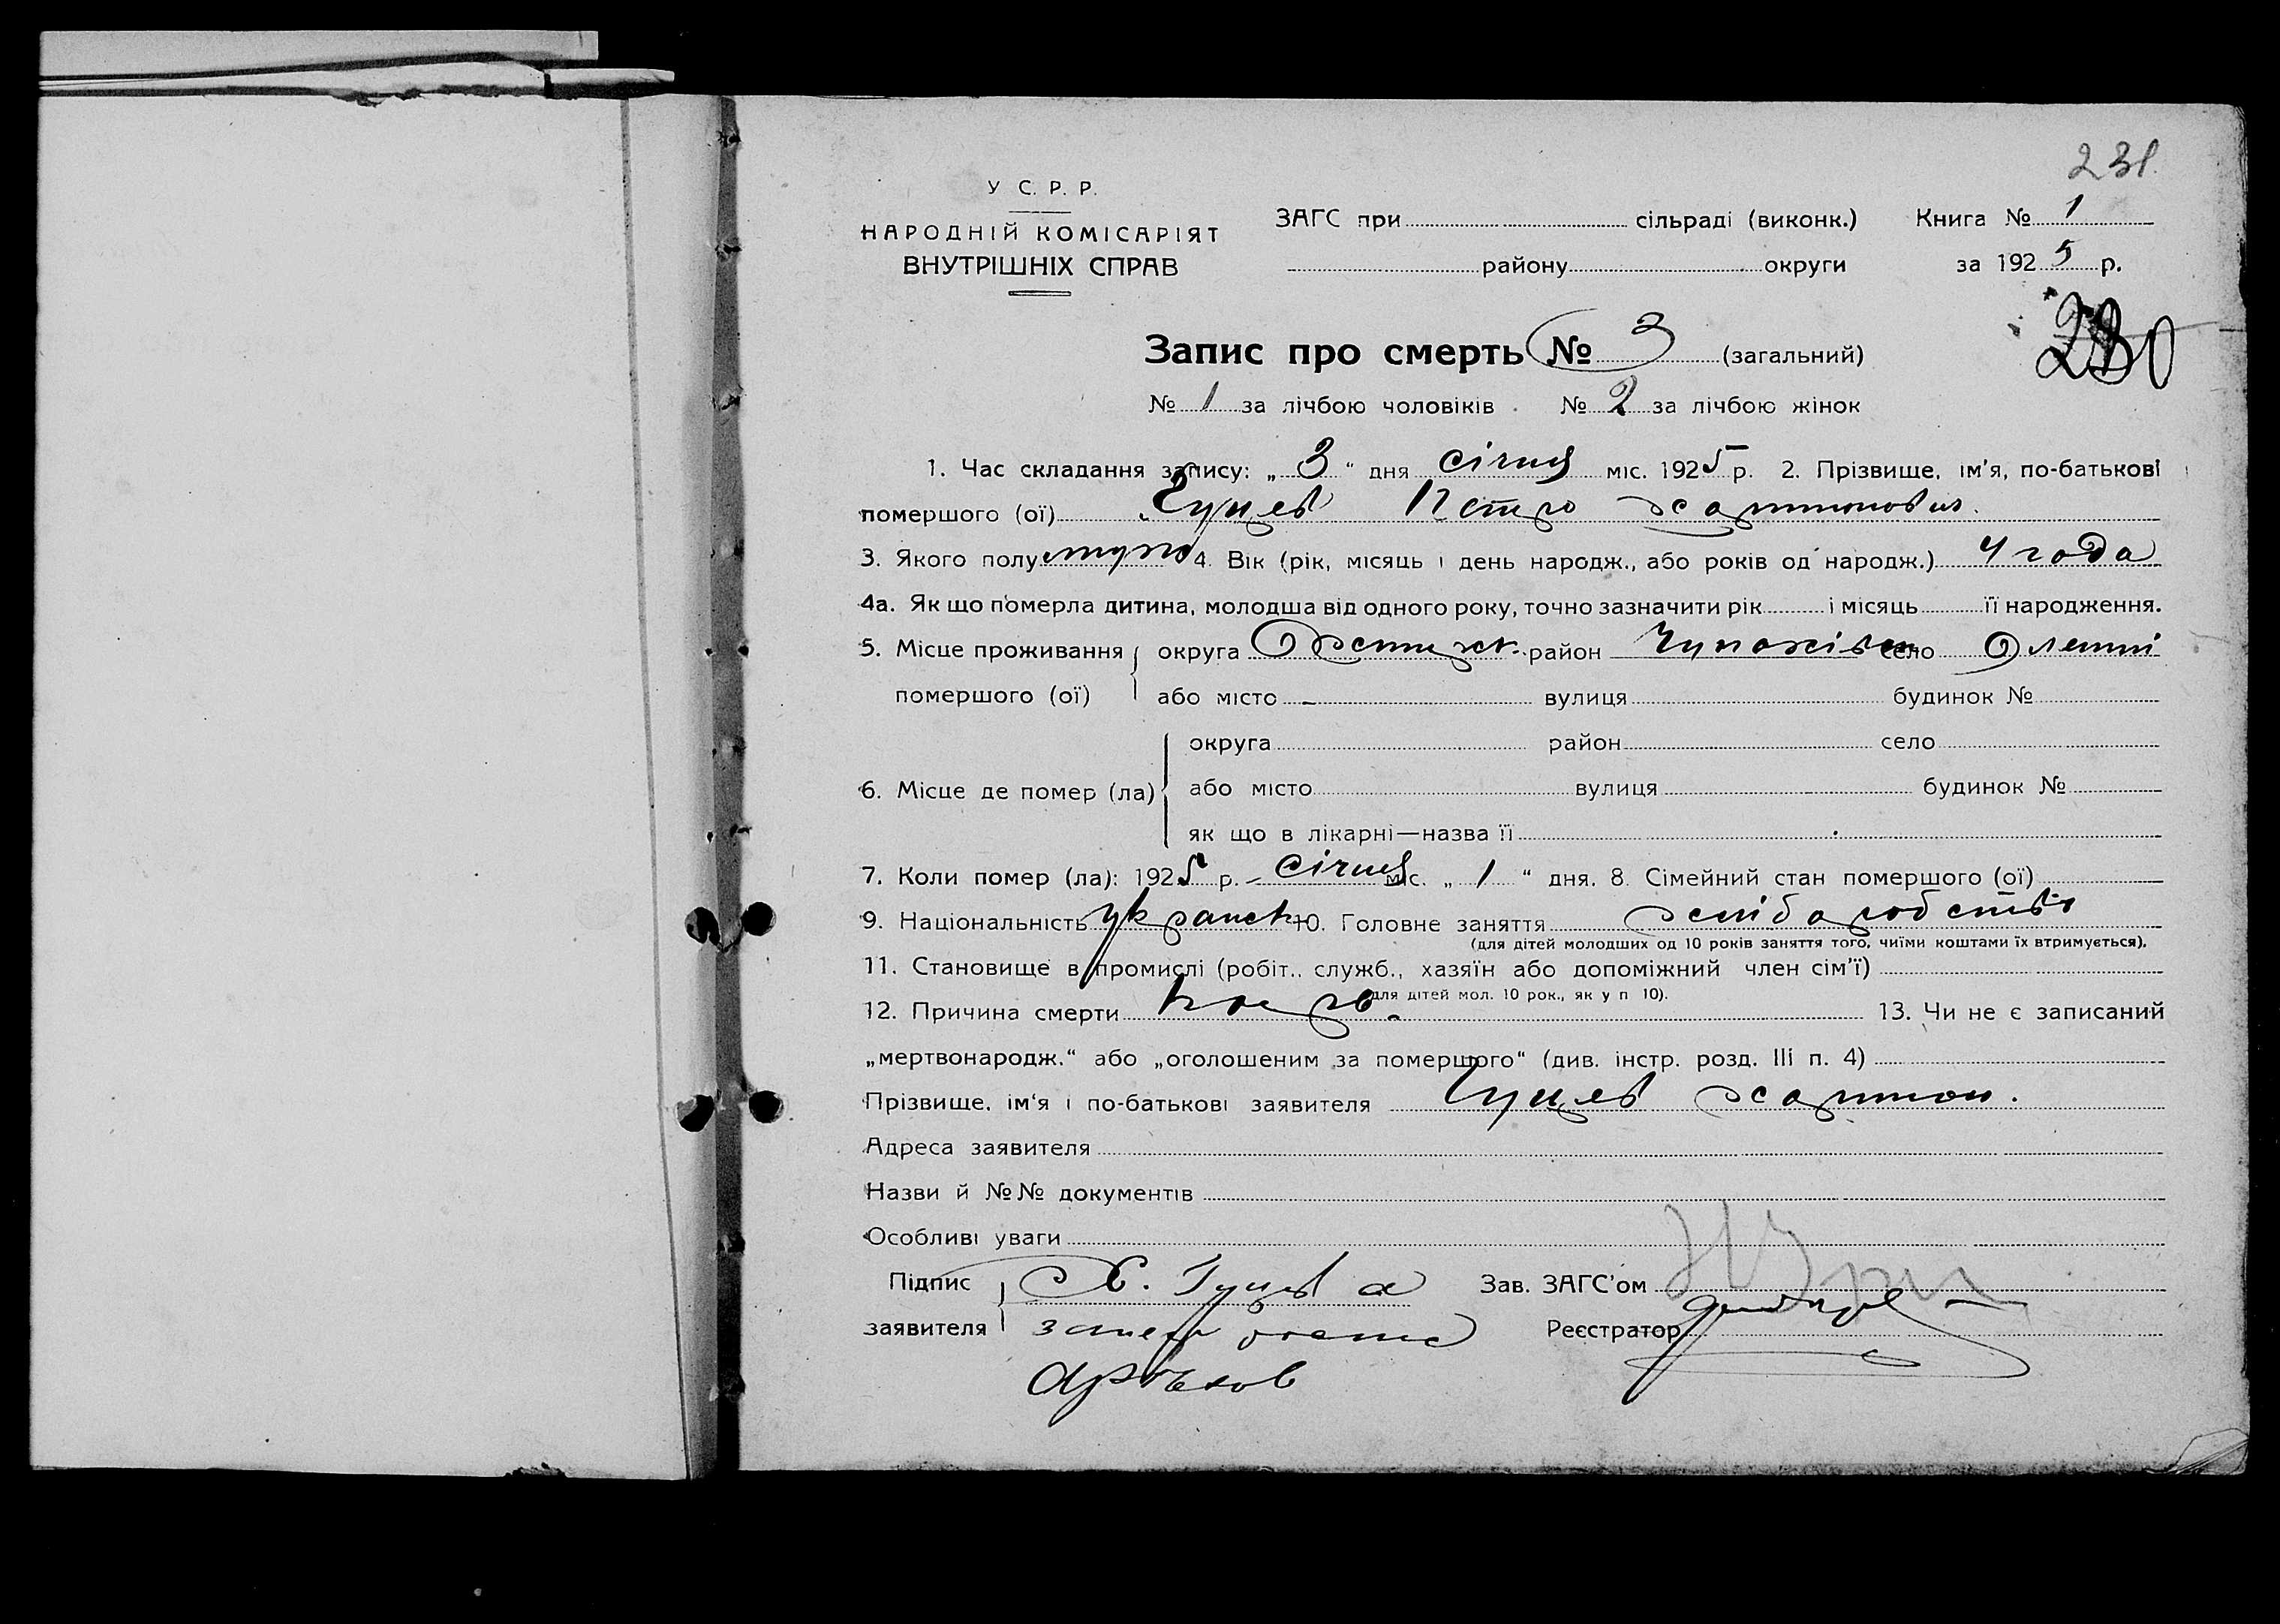 231.
У С. Р. Р.
НАРОДНІЙ КОМІСАРІЯТ
ВНУТРІШНІХ СПРАВ
ЗАГС при сільраді (виконк.) Книга № 1
району округи за 1925 р.
230
Запис про смерть № 3 (загальний)
№ 1 за лічбою чоловіків № 2 за лічбою жінок
1. Час складання запису: „ 3 “ дня січня міс. 1925 р. 2. Прізвище, ім'я, по-батькові
помершого (ої) Гуцев Петро Харитонович.
3. Якого полу муж 4. Вік (рік, місяць і день народж., або років од народж.) 4 года
4а. Як що померла дитина, молодша від одного року, точно зазначити рік і місяць її народження.
5. Місце проживання округа район село
помершого (ої) або місто вулиця будинок №
округа район село
6. Місце де помер (ла) або місто вулиця будинок №
як що в лікарні—назва її
7. Коли помер (ла): 1925 р. січня міс. „ 1 “ дня. 8. Сімейний стан помершого (ої)
9. Національність 10. Головне заняття
(для дітей молодших од 10 років заняття того, чиїми коштами їх втримується).
11. Становище в промислі (робіт.. служб., хазяїн або допоміжний член сім'ї)
для дітей мол. 10 рок., як у п 10).
12. Причина смерти 13. Чи не є записаний
„мертвонародж.“ або „оголошеним за помершого“ (див. інстр. розд. III п. 4)
Прізвище, ім'я і по-батькові заявителя Гуцев Харитон.
Адреса заявителя
Назви й №№ документів
Особливі уваги
Підпис Х. Гуцев а Зав. ЗАГС'ом
заявителя Реєстратор